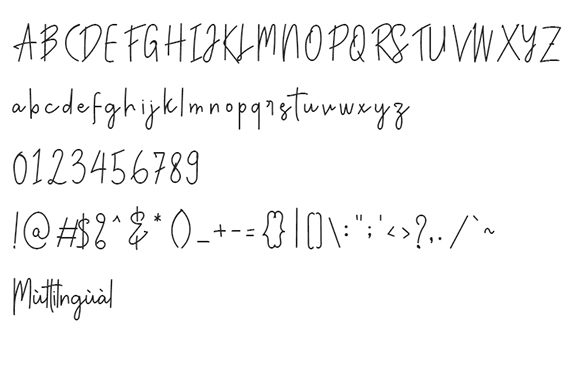 ABCDEFGHIJKLMNOPQRSTUVWXYZ
abcdefghijklmnopqrstuvwxyz
0123456789
!@#$%^&*()_+-={}|[]\:";'<>?,./`~
Mùltilingùàl